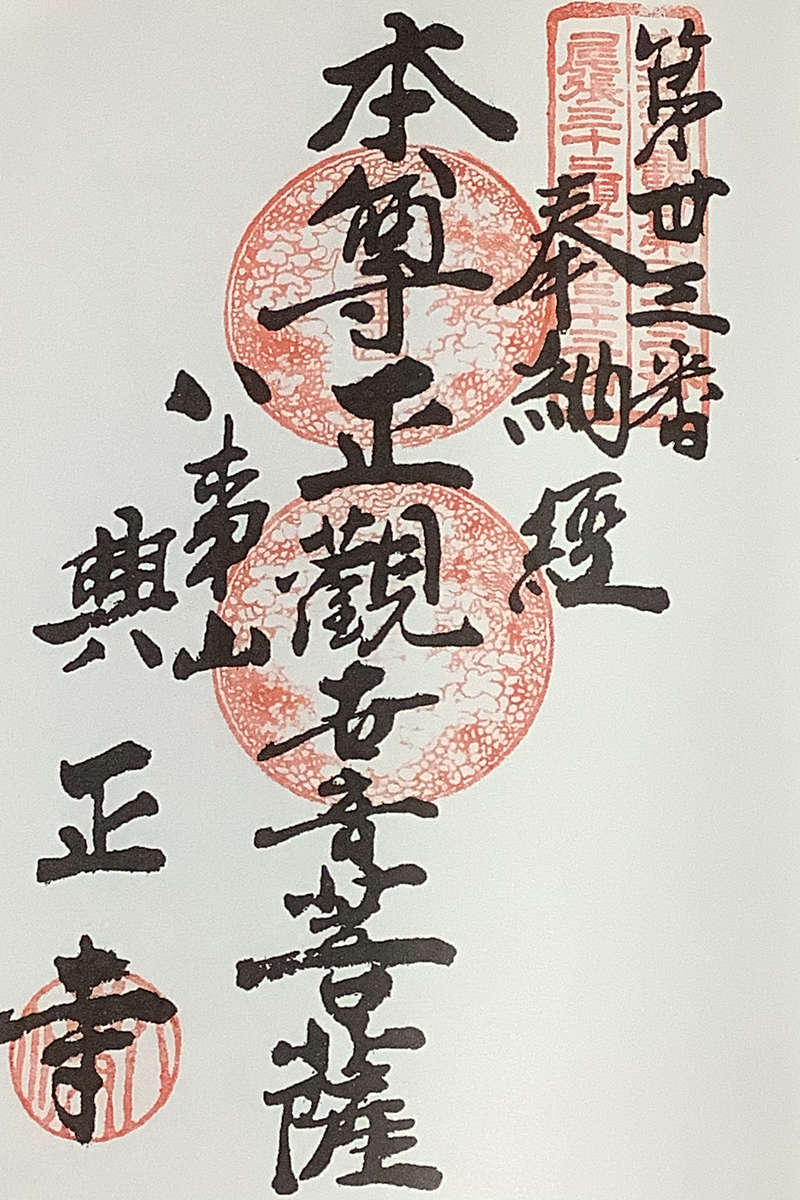 第廿三番
奉納經
本尊正觀世音菩薩
八事山
興正寺
尾張三十三